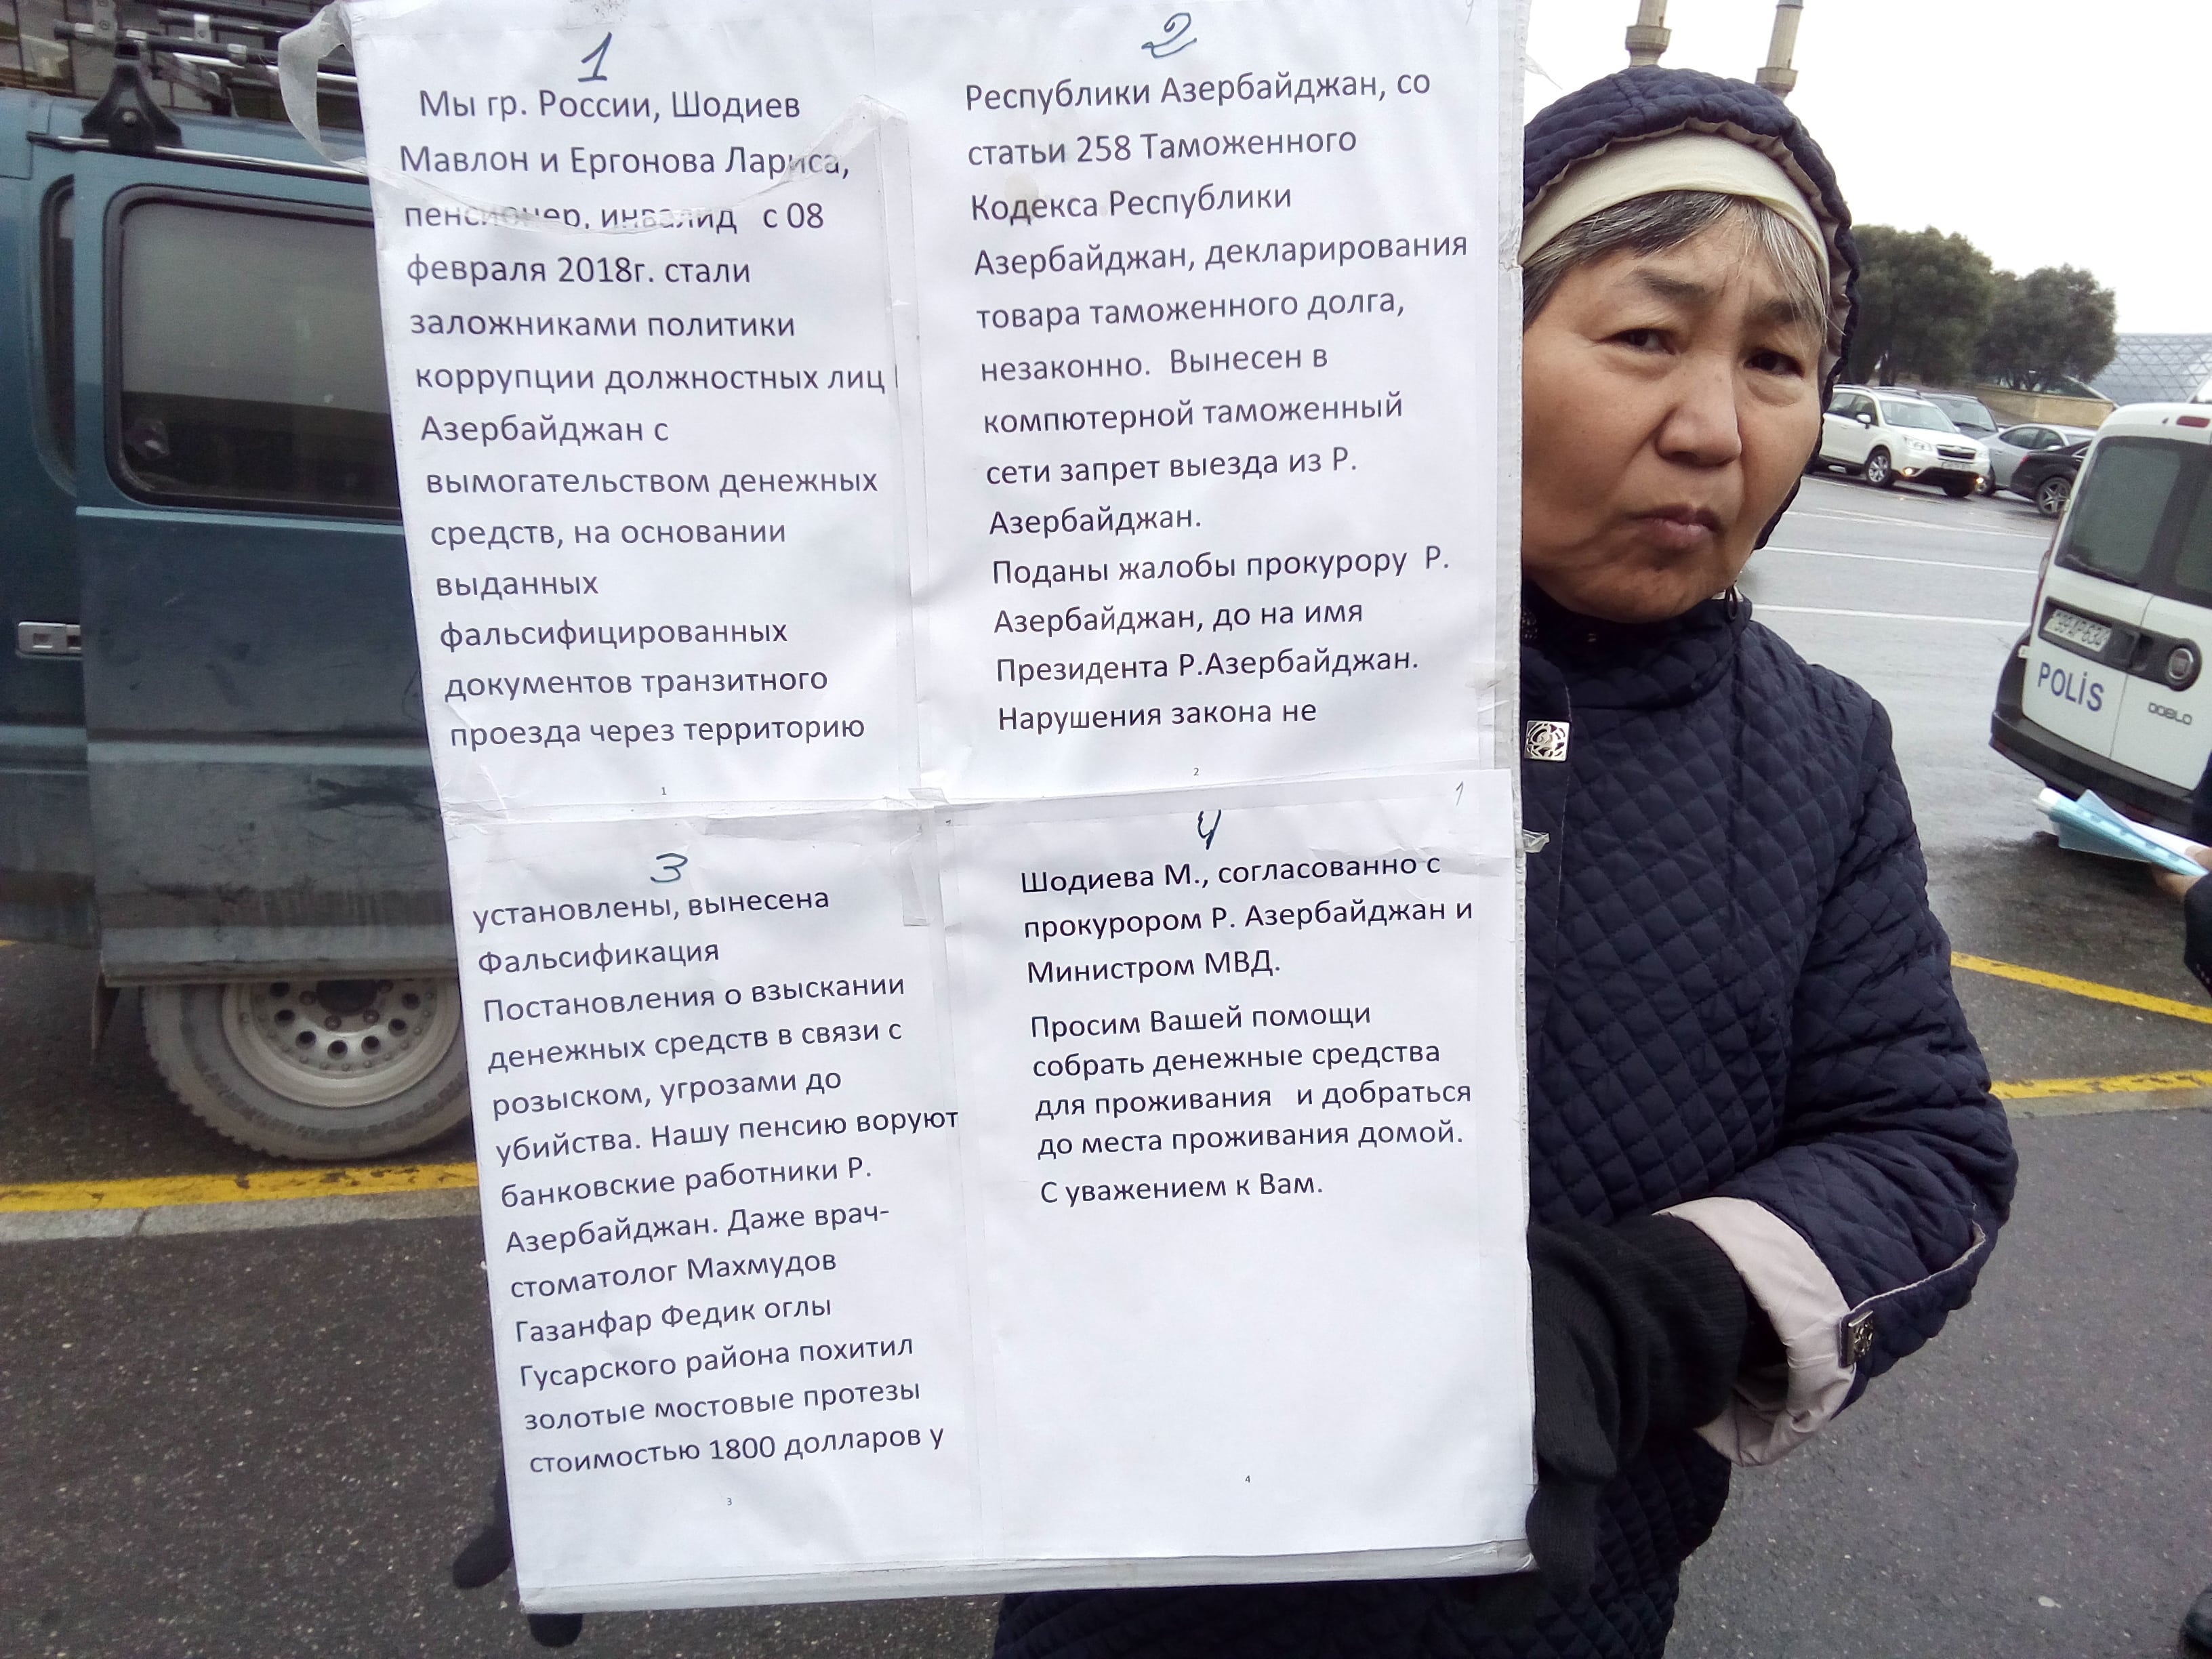 1
Мы гр. России, Шодиев
Мавлон и Ергонова Лариса,
пенсионер, инвалид с 08
февраля 2018г. стали
заложниками политики
коррупции должностных лиц
Азербайджан с
вымогательством денежных
средств, на основании
выданных
фальсифицированных
документов транзитного
проезда через территорию
1
2
Республики Азербайджан, со
статьи 258 Таможенного
Кодекса Республики
Азербайджан, декларирования
товара таможенного долга,
незаконно. Вынесен в
компютерной таможенный
сети запрет выезда из Р.
Азербайджан.
Поданы жалобы прокурору Р.
Азербайджан, до на имя
Президента Р.Азербайджан.
Нарушения закона не
2
3
установлены, вынесена
Фальсификация
Постановления о взыскании
денежных средств в связи с
розыском, угрозами до
убийства. Нашу пенсию воруют
банковские работники Р.
Азербайджан. Даже врач-
стоматолог Махмудов
Газанфар Федик оглы
Гусарского района похитил
золотые мостовые протезы
стоимостью 1800 долларов у
3
4
Шодиева М., согласованно с
прокурором Р. Азербайджан и
Министром МВД.
Просим Вашей помощи
собрать денежные средства
для проживания и добраться
до места проживания домой.
С уважением к Вам.
4
POLİS
DOBLO